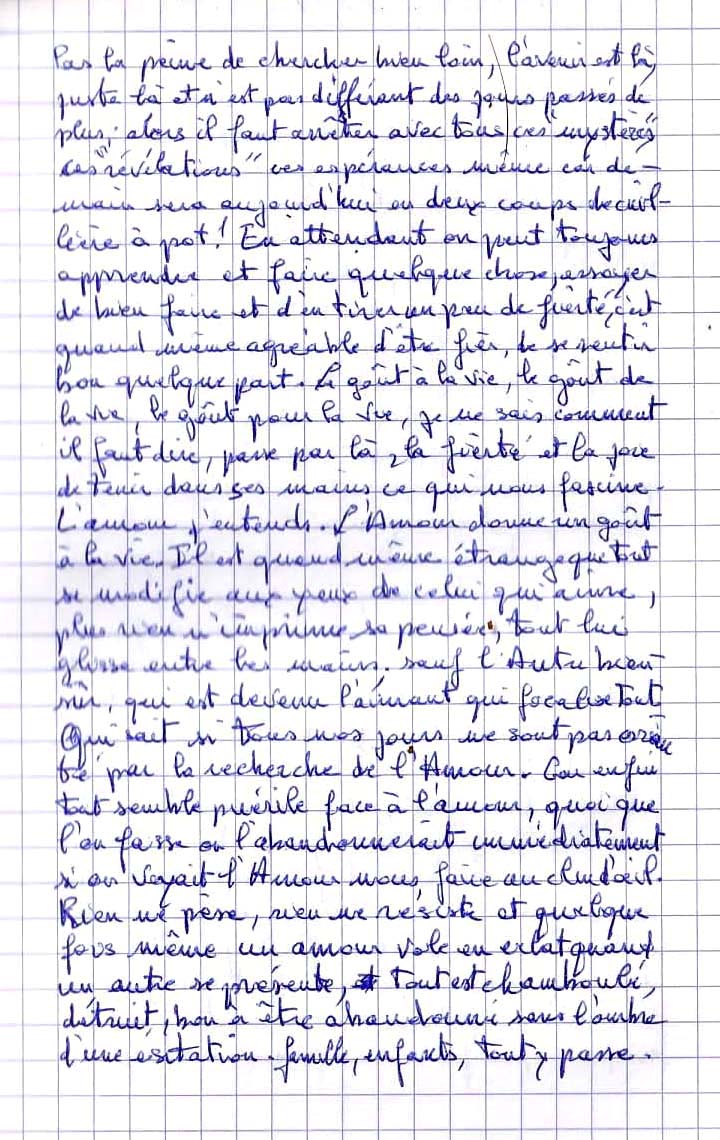 Pas la peine de chercher bien loin, l'avenir est là,
juste là et n'est pas différant des jours passés de
plus, alors il faut arrêter avec tous ces "mystères"
ces "révélations" ces espérances même car de-
main sera aujourd'hui en deux coups de cuil-
lière à pot! En attendant on peut toujours
apprendre et faire quelque chose, essayer
de bien faire et d'en tirer un peu de fierté, c'est
quand même agréable d'être fier, de se sentir
bon quelque part. Le goût à la vie, le goût de
la vie, le goût pour la vie, je ne sais comment
il faut dire, passe par là, la fierté et la joie
de tenir dans ses mains ce qui nous fascine.
L'amour j'entends. L'Amour donne un goût
à la vie. Il est quand même étrange que tout
se modifie aux yeux de celui qui aime,
plus rien n'imprime sa pensée, tout lui
glisse entre les mains, sauf l'Autre bien
sûr, qui est devenu l'aimant qui focalise tout
Qui sait si tous nos jours ne sont pas orien
té par la recherche de l'Amour. Car enfin
tout semble puérile face à l'amour, quoi que
l'on fasse on l'abandonnerait immédiatement
si on voyait l'Amour nous faire un clin d'œil.
Rien ne pèse, rien ne résiste et quelque
fois même un amour vole en eclat quand
un autre se présente, tout est chamboulé,
détruit, bon à être abandonné sans l'ombre
d'une esitation. famille, enfants, tout y passe.